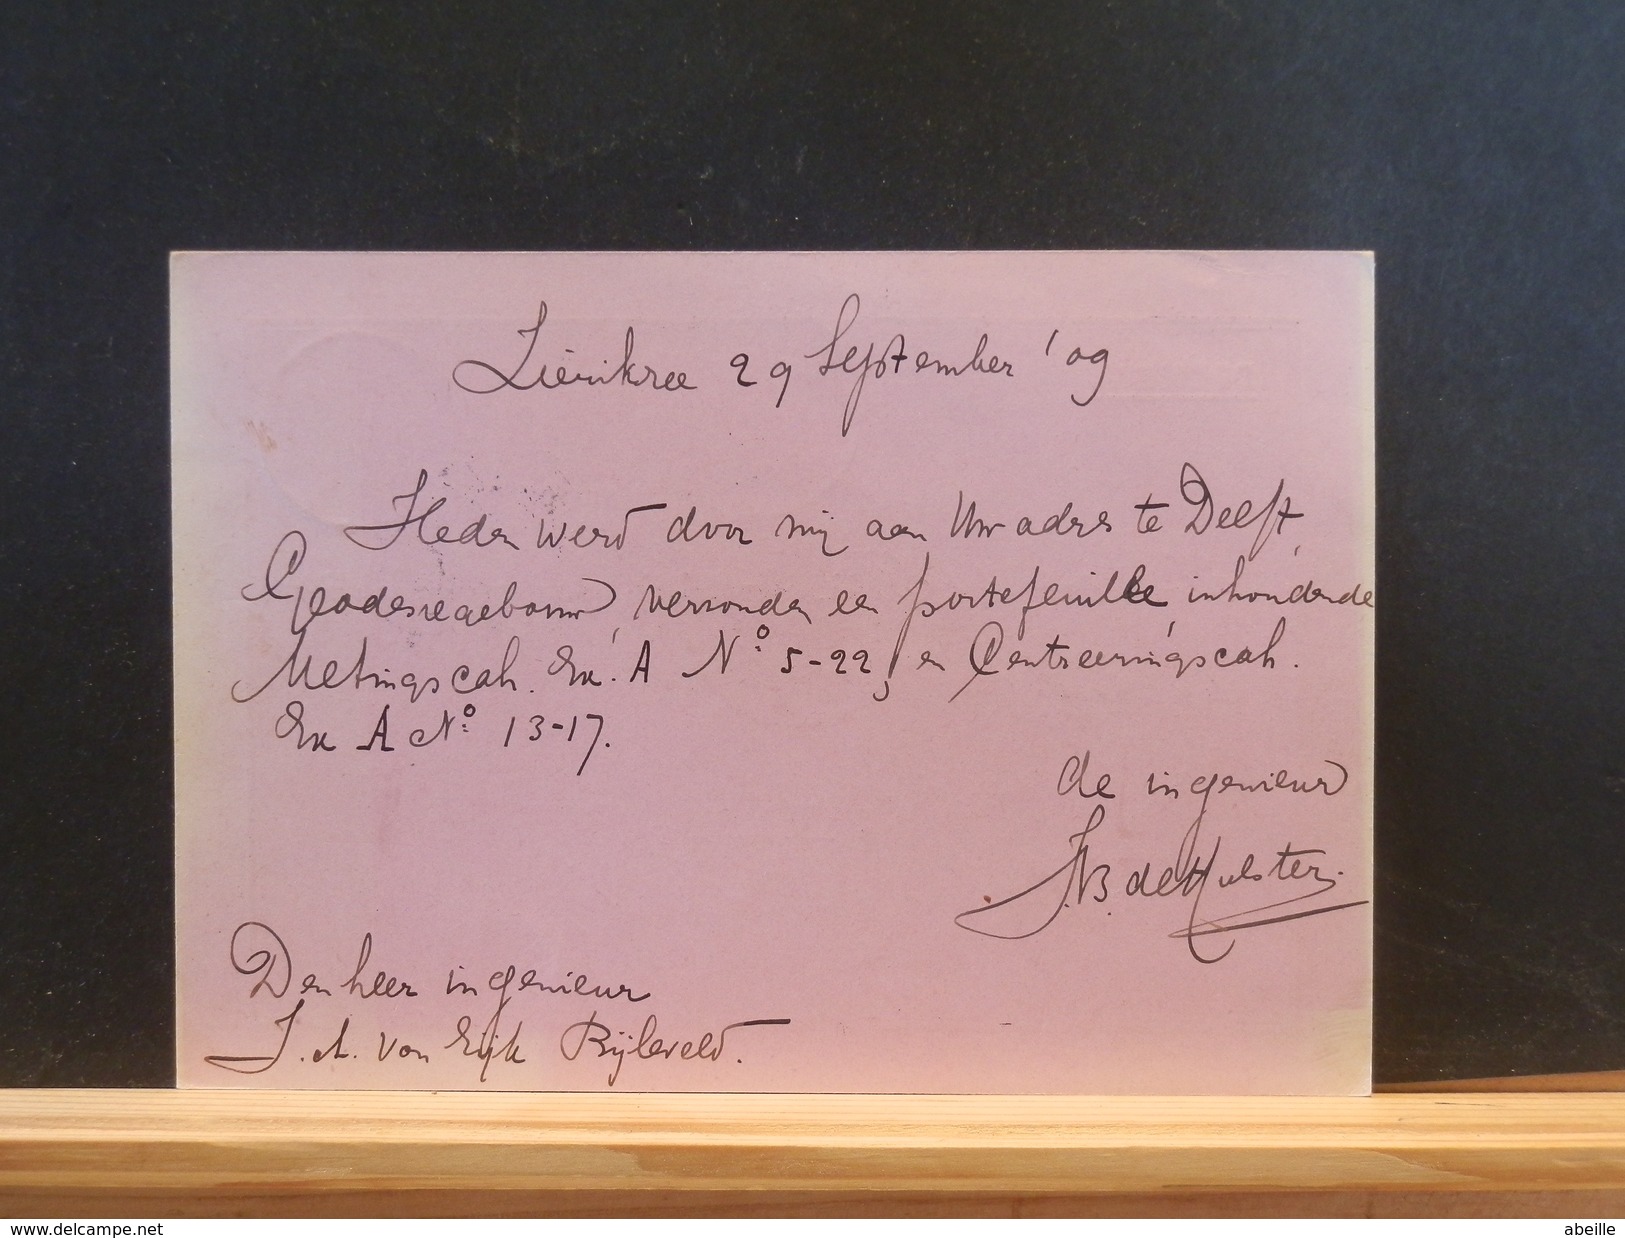 Zierikzee 29 September '09
Heden werd door mij aan Uw adres te Delft,
Geodesiegebouw, verzonden een portefeuille, inhoudende
Metingscah. Ex. A No: 5-22, en Centreeringscah.
Ex A No: 13-17.
de ingenieur
J.B. de Hulster.
Den heer ingenieur
J. A. van Eijk Bijleveld.
www.delcampe.net
abeille